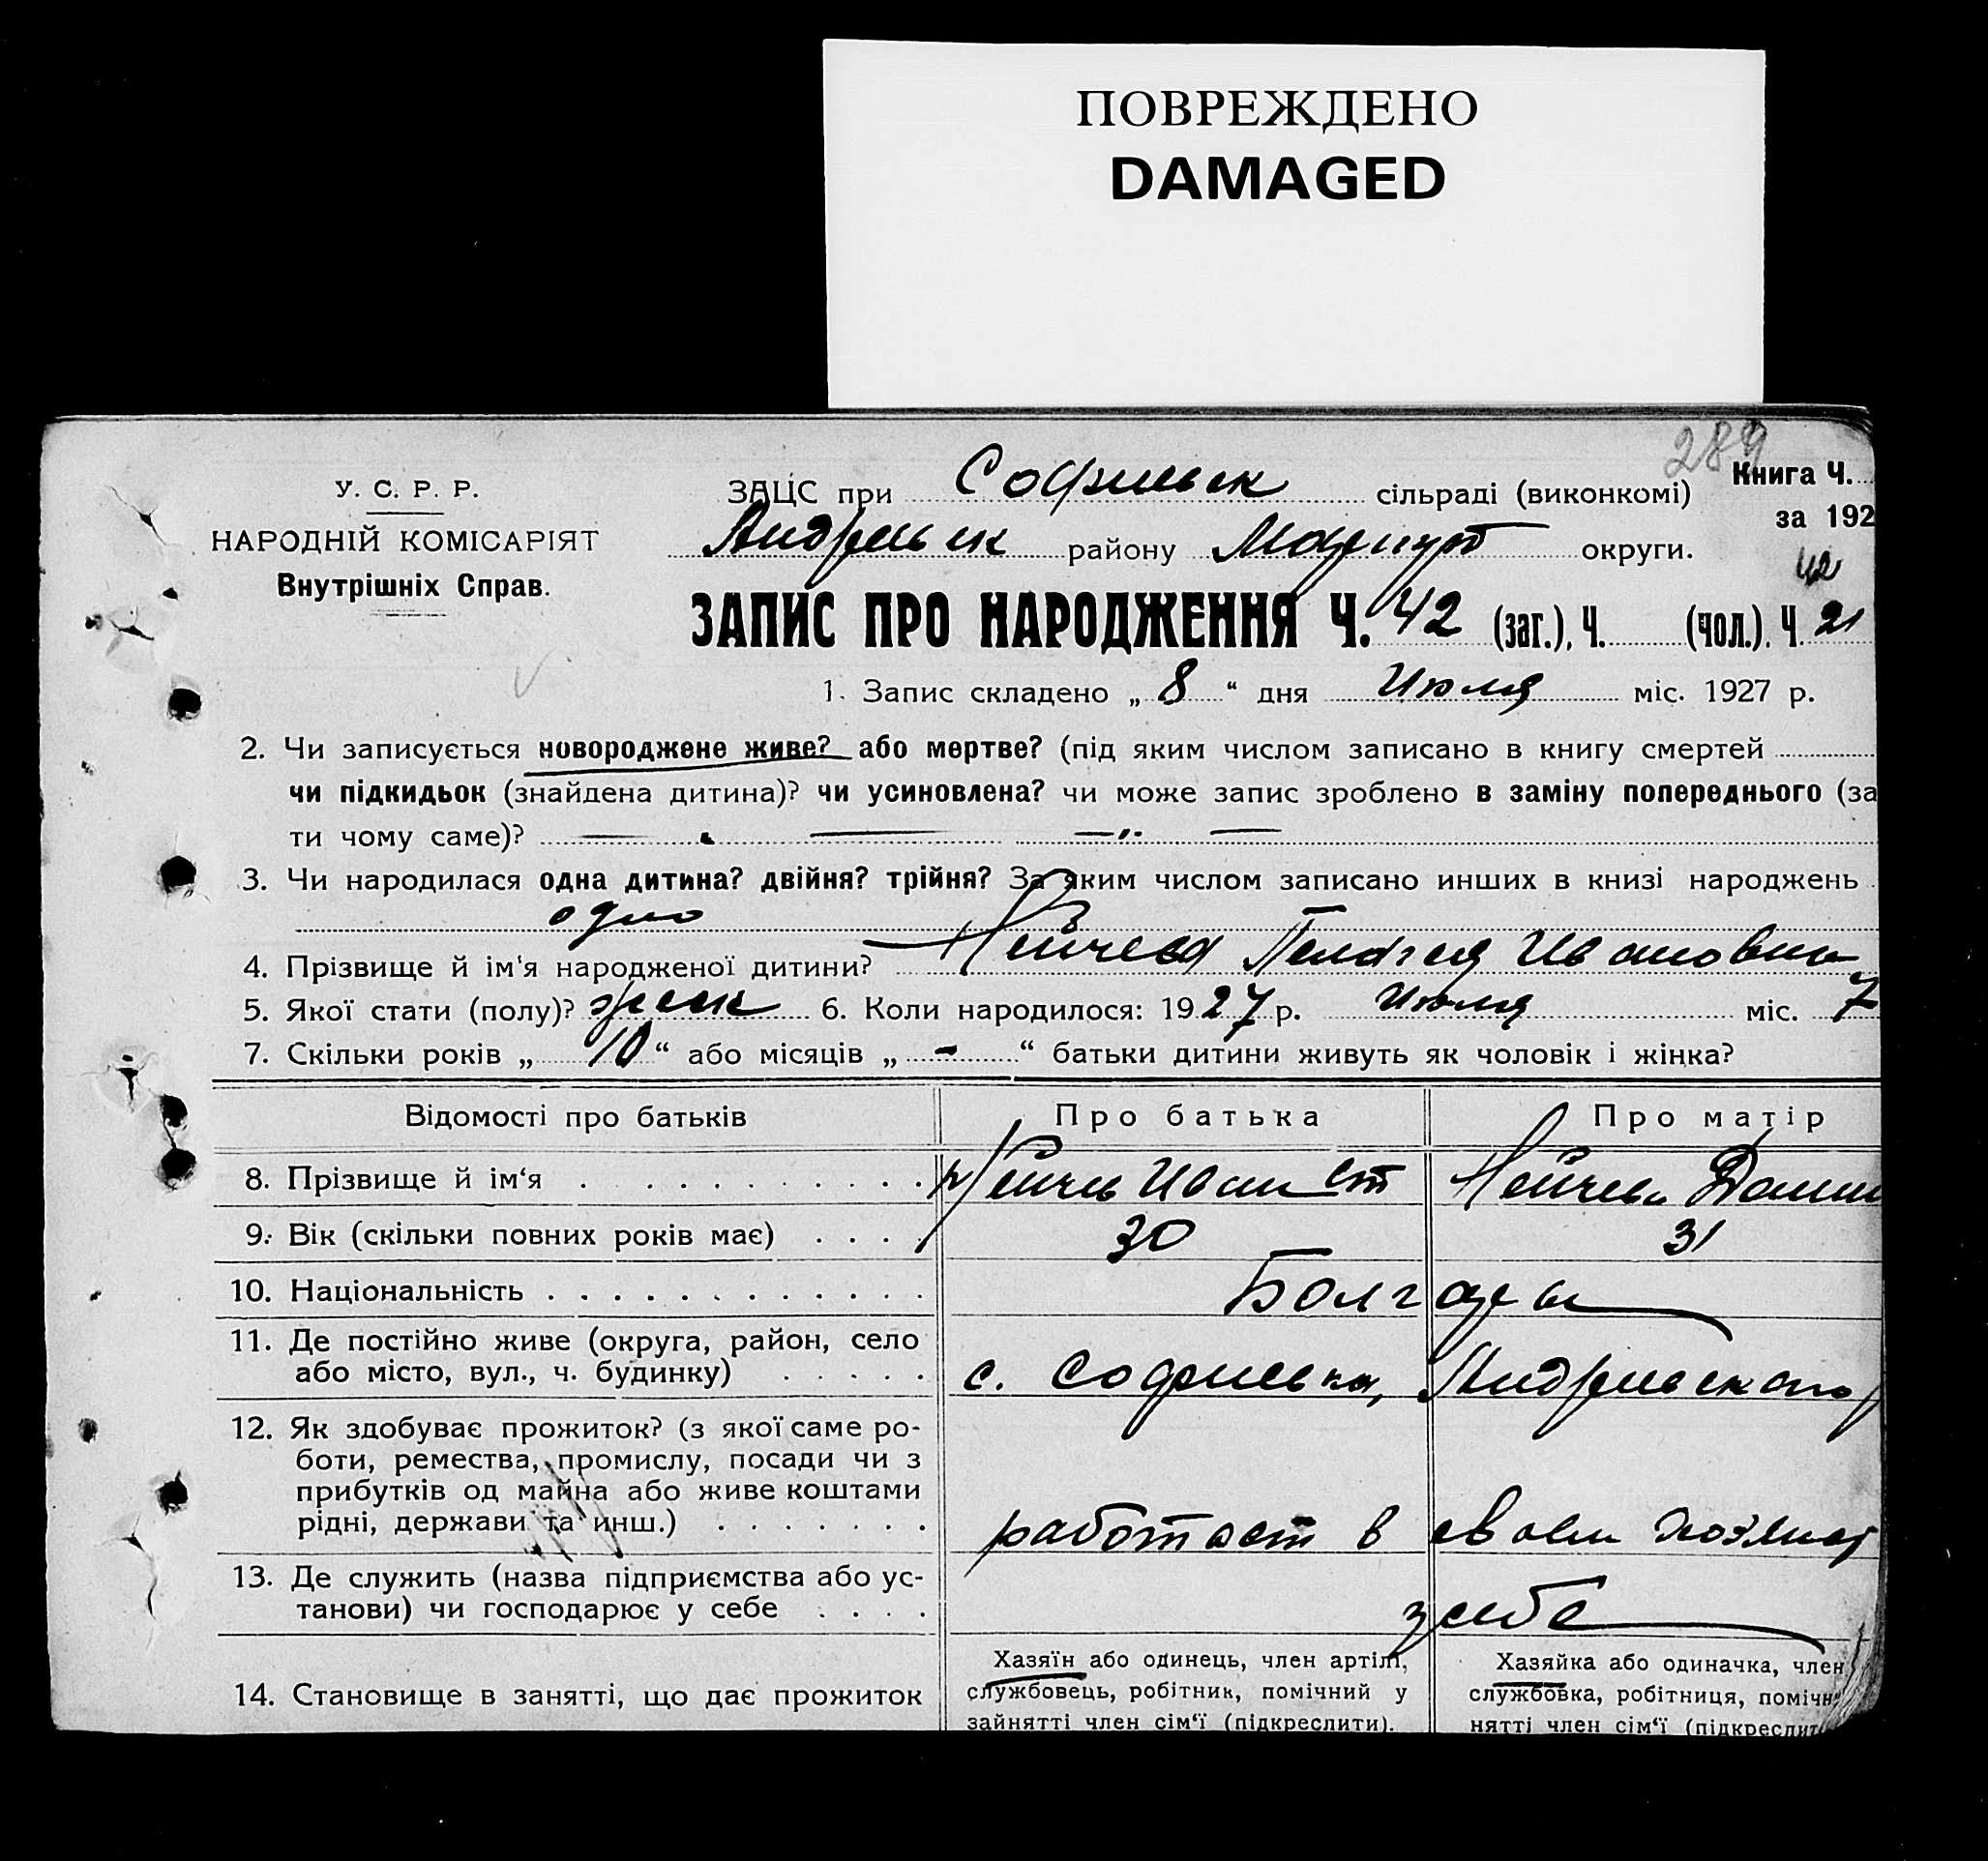 ПОВРЕЖДЕНО
DAMAGED
289
У. С. Р. Р.
НАРОДНІЙ КОМІСАРІЯТ
Внутрішніх Справ.
Книга Ч.
за 192
ЗАЦС при Софиевск сільраді (виконкомі)
Андреевск району Мариуп округи.
42
ЗАПИС ПРО НАРОДЖЕННЯ Ч. 42 (заг.), Ч. (чол.). Ч. 21
1. Запис складено „ 8 “ дня Июля міс. 1927 р.
2. Чи записується новороджене живе? або мертве? (під яким числом записано в книгу смертей
чи підкидьок (знайдена дитина)? чи усиновлена? чи може запис зроблено в заміну попереднього (за
ти чому саме)? — „ —
3. Чи народилася одна дитина? двійня? трійня? За яким числом записано инших в книзі народжень
одно
4. Прізвище й ім'я народженої дитини? Нейчева Пелагея Ивановна
5. Якої стати (полу)? женск 6. Коли народилося: 1927 р. Июля міс. 7
7. Скільки років „ 10 “ або місяців „ - “ батьки дитини живуть як чоловік і жінка?
Відомості про батьків Про батька Про матір
8. Прізвище й ім‘я . . . . . . . . . . Нейчев Иван Ст Нейчева Домни
9. Вік (скільки повних років має) . . . . 30 31
10. Національність . . . . . . . . . . . . . Болгары
11. Де постійно живе (округа, район, село
або місто, вул., ч. будинку) . . . . . с. Софиевка, Андреевского
12. Як здобуває прожиток? (з якої саме ро-
боти, ремества, промислу, посади чи з
прибутків од майна або живе коштами
рідні, держави та инш.) . . . . . . . работает в своем хозяйс
13. Де служить (назва підприємства або ус-
танови) чи господарює у себе . . . . у себе
14. Становище в занятті, що дає прожиток
Хазяїн або одинець, член артілі,
службовець, робітник, помічний у
зайнятті член сім‘ї (підкреслити).
Хазяйка або одиначка, член
службовка, робітниця, помічн
нятті член сім‘ї (підкреслит